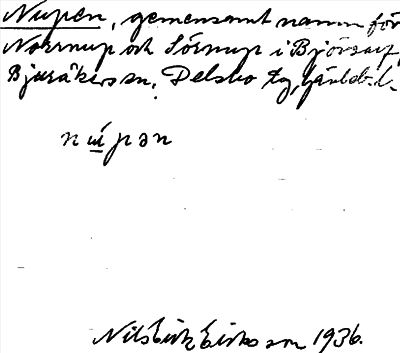 Nupen, gemensamt namn för
Norrnup och Sörnup i Bjursarf,
Bjuråkers sn. Delsbo tg, Gävleb. l.
núpən
Nils Erik Eriksson 1936.